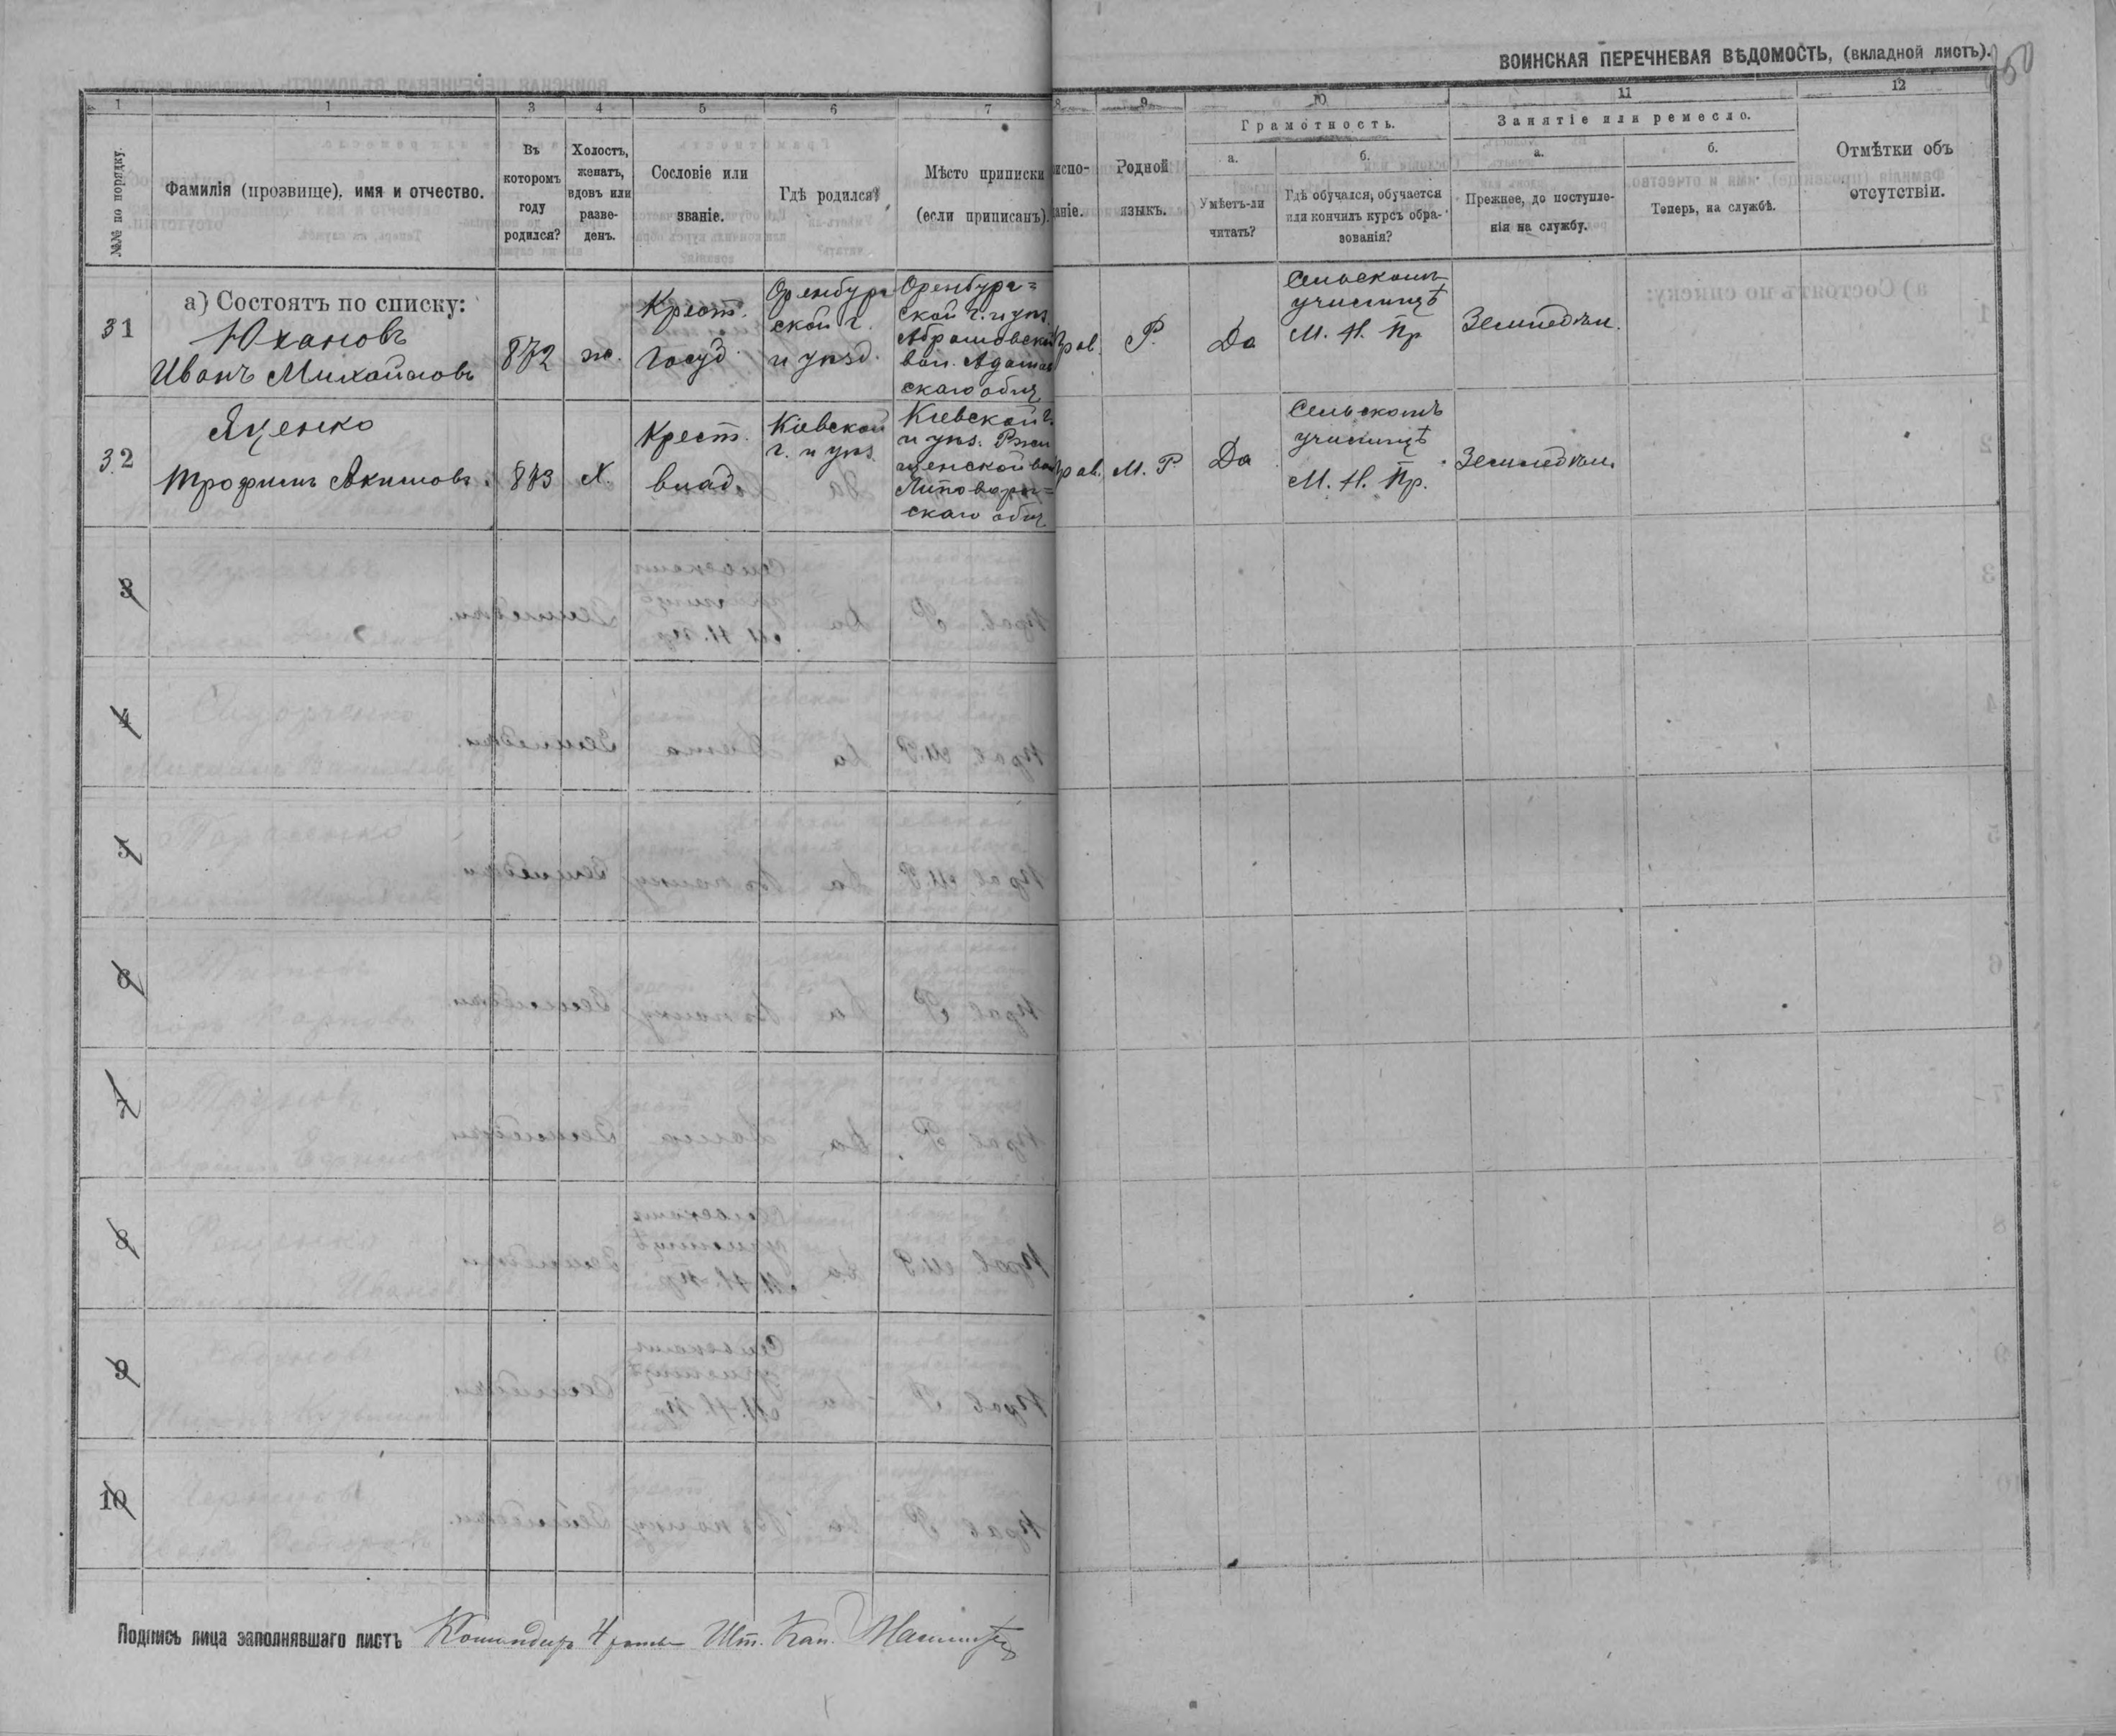 ВОИНСКАЯ ПЕРЕЧНЕВАЯ ВѢДОМОСТЬ, (вкладной листъ).
1 1 3 4 5 6 7 8 9 10 11 12
№№ по порядку.
Фамилія (прозвище), имя и отчество.
Въ
которомъ
году
родился?
Холостъ,
женатъ,
вдовъ или
разве-
денъ.
Сословіе или
званіе.
Гдѣ родился?
Мѣсто приписки
(если приписанъ).
испо-
аніе.
Родной
языкъ.
Грамотность.
а.
Умѣетъ-ли
читать?
б.
Гдѣ обучался, обучается
или кончилъ курсъ обра-
зованія?
Занятіе или ремесло.
а.
Прежнее, до поступле-
нія на службу.
б.
Теперь, на службѣ.
Отмѣтки объ
отсутствіи.
а) Состоятъ по списку:
31
Юхановъ
Иванъ Михайловъ
872
ж.
Крест.
Госуд.
Оренбург
ской г.
и уѣзд.
Оренбург=
ской г. и уѣз.
вол.
скаго общ
Прав.
Р.
Да
Сельскомъ
училищѣ
М. Н. Пр
Земледѣл.
32
Яценко
Трофимъ Акимовъ.
873
Х.
Крест.
влад.
Кіевской
г. и уѣз
Кіевской г.
и уѣз. Ржи
щенской вол
скаго общ
Прав.
М. Р
Да
Сельскомъ
училищѣ
М. Н. Пр.
Земледѣл.
3
4
5
6
7
8
9
10
Подпись лица заполнявшаго листъ Командиръ 4 роты Шт. Кап.